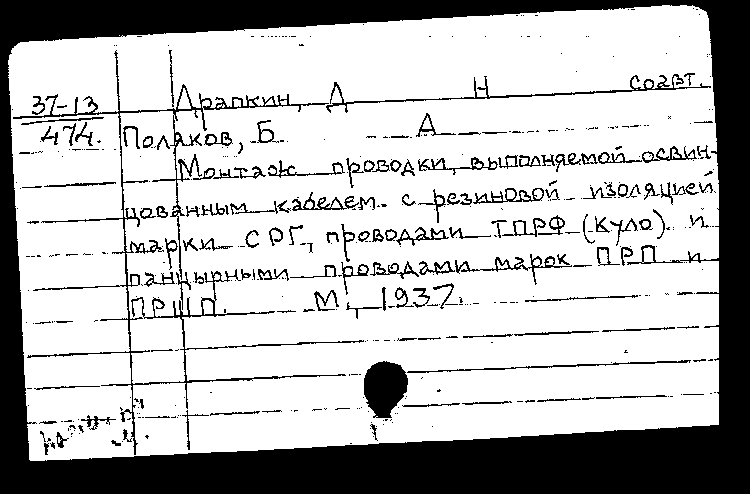 37-13 Драпкин, Д Н соавт.
474. Поляков, Б А
Монтаж проводки, выполняемой освин-
цованным кабелем с резиновой изоляцией
марки СРГ, проводами ТПРФ (Куло) и
панцырными проводами марок ПРП и
ПРШП. М., 1937.